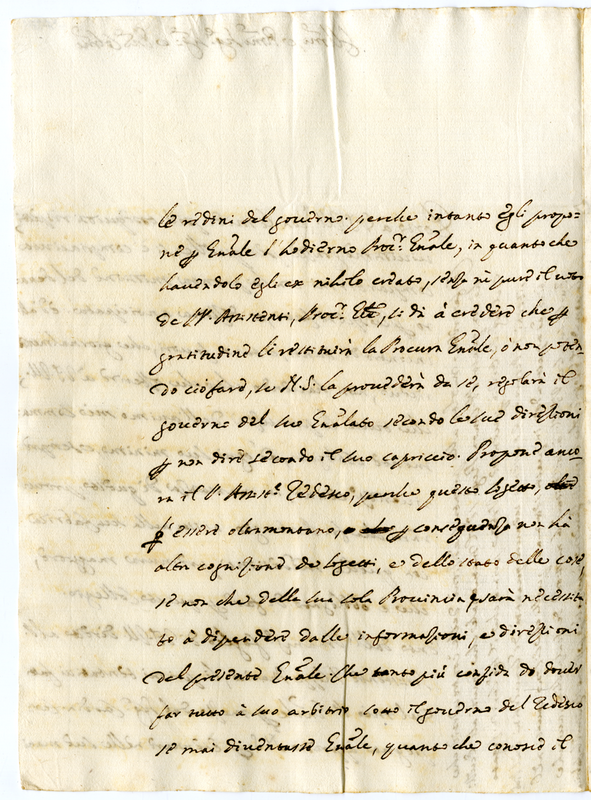 le redini del governo. perche intanto egli propo=
ne p Enāle l'hodierno Procr. Enāle, in quanto che
havendolo egli ex nihilo creato, senza nè pure il voto
de PP. Assistenti, Procr. Etc, si dà à credere che p
gratitudine li restituirà la Procura Enāle, ò non poten
do ciò fare, se N.S. la provederà da se, regolarà il
governo del suo Enālato secondo le sue direzioni
p non dire secondo il suo capriccio. Propone anco
ra il P. Assist.e Tedesco, perche questo sogetto,
p essere oltramontano, p consequenza non hà
altra cognizione de sogetti, e dello stato delle cose,
se non che della sua sola Provincia, e sarà necessita
to à dipendere dalle informazioni, e direzioni
del presente Enāle. Che tanto più confida do dover
far tutto à suo arbitrio sotto il governo del Tedesco
se mai diventasse Enāle, quanto che conosce il